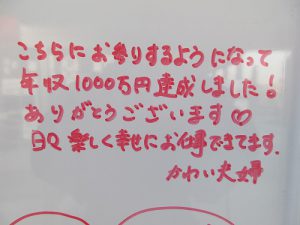 こちらにお参りするようになって
年収1000万円達成しました!
ありがとうございます♡
日々楽しく幸せにお仕事できてます.
かわい夫婦